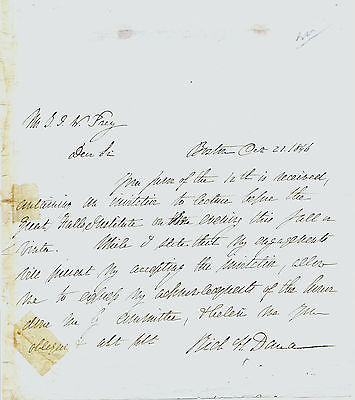 Mr. J. W. Frey
Dear Sir
Boston Oct 21 1846
Your favor of the 10th is received,
containing an invitation to lecture before the
Great Falls Institute on evening this fall or
winter. While I state that my engagements
will prevent my accepting the invitation, allow
me to express my acknowledgments of the honor
done me by committee, & believe me Yr.
obliged & obt svt
Rich H. Dana